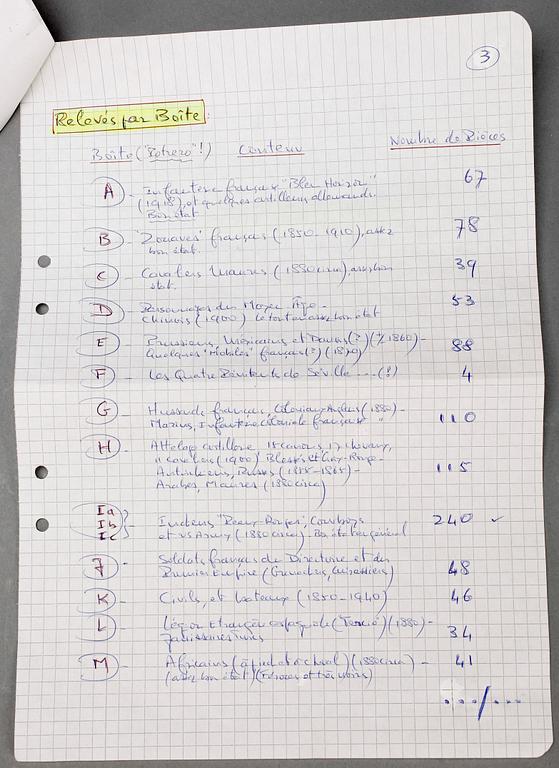 3
Relevés par Boîte
Boîte ("Potrero"!) Contenu Nombre de Pièces
A - Infanterie française "Bleu Horizon" 67
(1918), et quelques artilleurs allemands.
Bon état
B - "Zouaves" français (1850-1910), assez 78
bon état.
C - Cavaliers Maures (1880 circa), assez bon 39
état.
D - Personnages du Moyen-Âge - 53
Chinois (1900) le tout en assez bon état
E - Prussiens, Mexicains et Danois (?) (+/- 1860) - 88
Quelques "Mobiles" français (?) (1870)
F - Les Quatre Pénitents de Séville .... (!) 4
G - Hussards français, Coloniaux Anglais (1880) - 110
Marins, Infanterie Coloniale française "
H - Attelage artillerie 15 canons, 17 chevaux,
11 cavaliers (1900) Blessés et Croix-Rouge - 115
Autrichiens, Russes (1855-1865) -
Arabes, Maures (1880 circa)
Ia
Ib - Indiens "Peaux-Rouges", Cowboys 240
Ic et US Army (1880 circa) - Bon état en général
J - Soldats français du Directoire et du 48
Premier Empire (Grenadiers, Cuirassiers)
K - Civils, et bateaux (1850-1940) 46
L - Légion Etrangère espagnole (Tercio) (1880) - 34
Janissaires turcs
M - Africains (à pied et à cheval) (1880 circa) - 41
(assez bon état) (Féroces et très noirs)
.../...